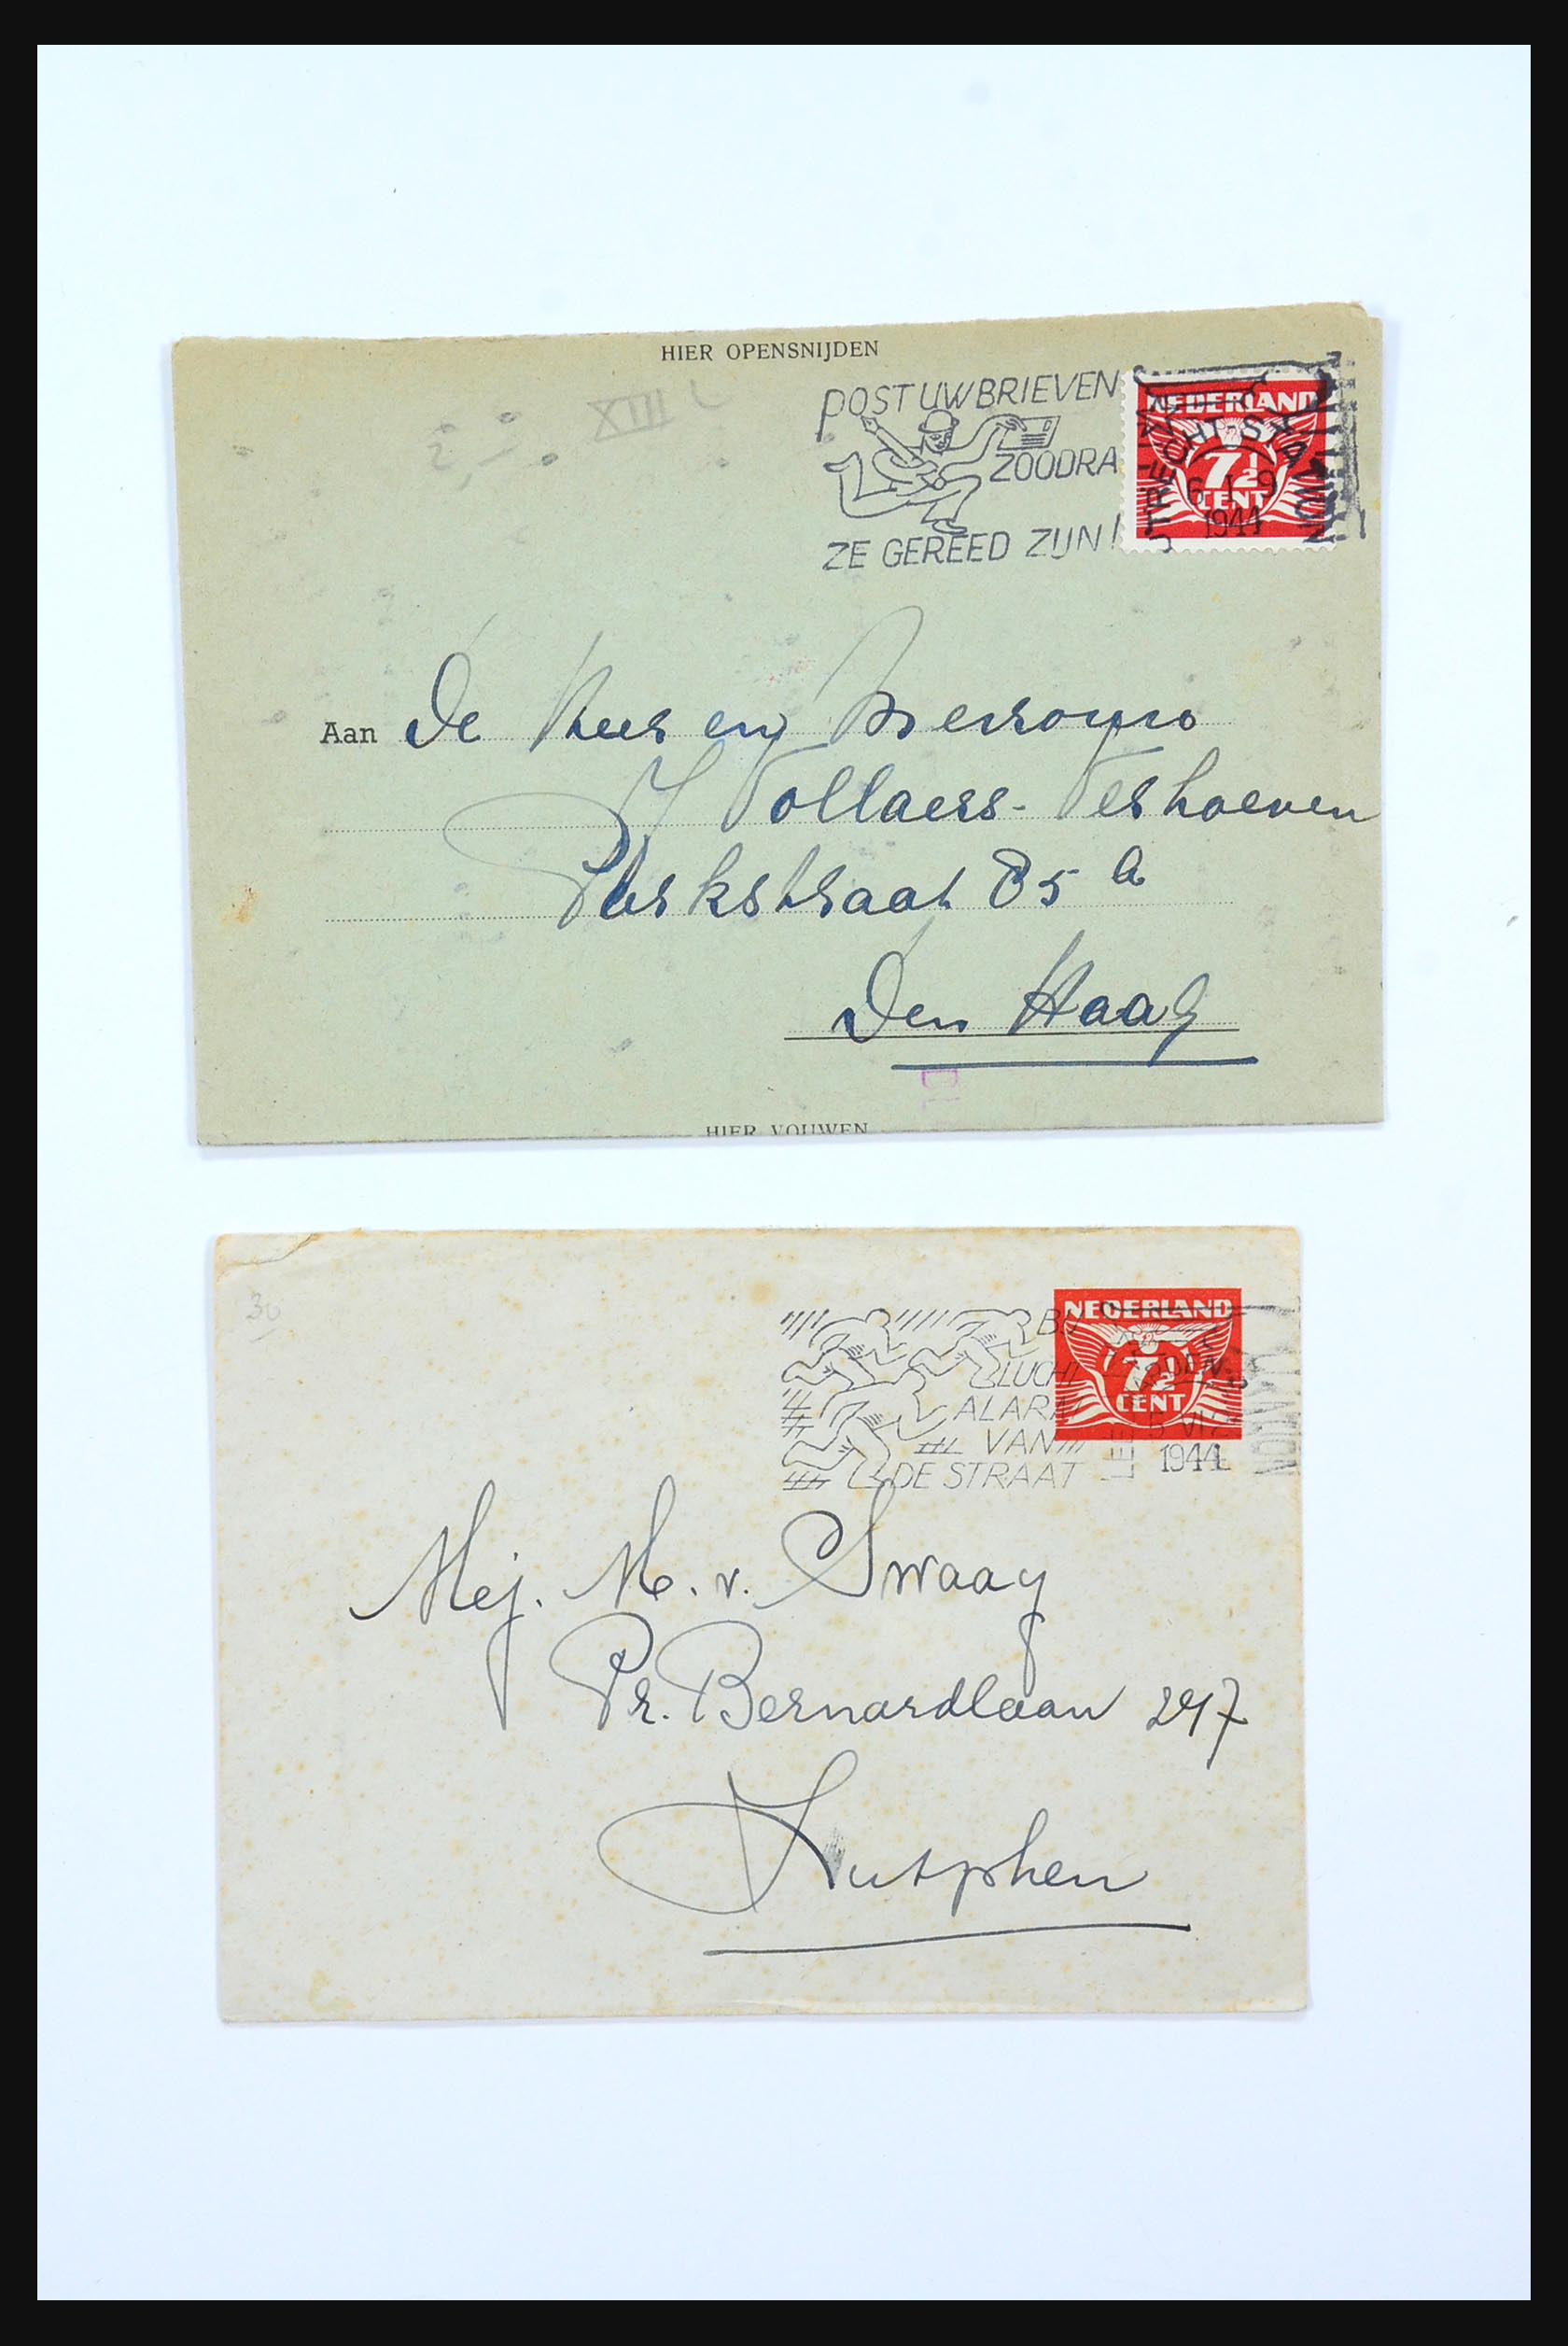 HIER OPENSNIJDEN
XIII
POST UW BRIEVEN
ZOODRA
ZE GEREED ZIJN!
NEDERLAND
7½
CENT
6 I 9
1944
Aan De Heer en Mevrouw
J Vollaers-Verhoeven
Parkstraat 85 a
Den Haag
HIER VOUWEN
30
BIJ
LUCHT
ALARM
VAN
DE STRAAT
NEDERLAND
7½
CENT
1944
Mej. M. v. Swaay
Pr. Bernardlaan 247
Zutphen